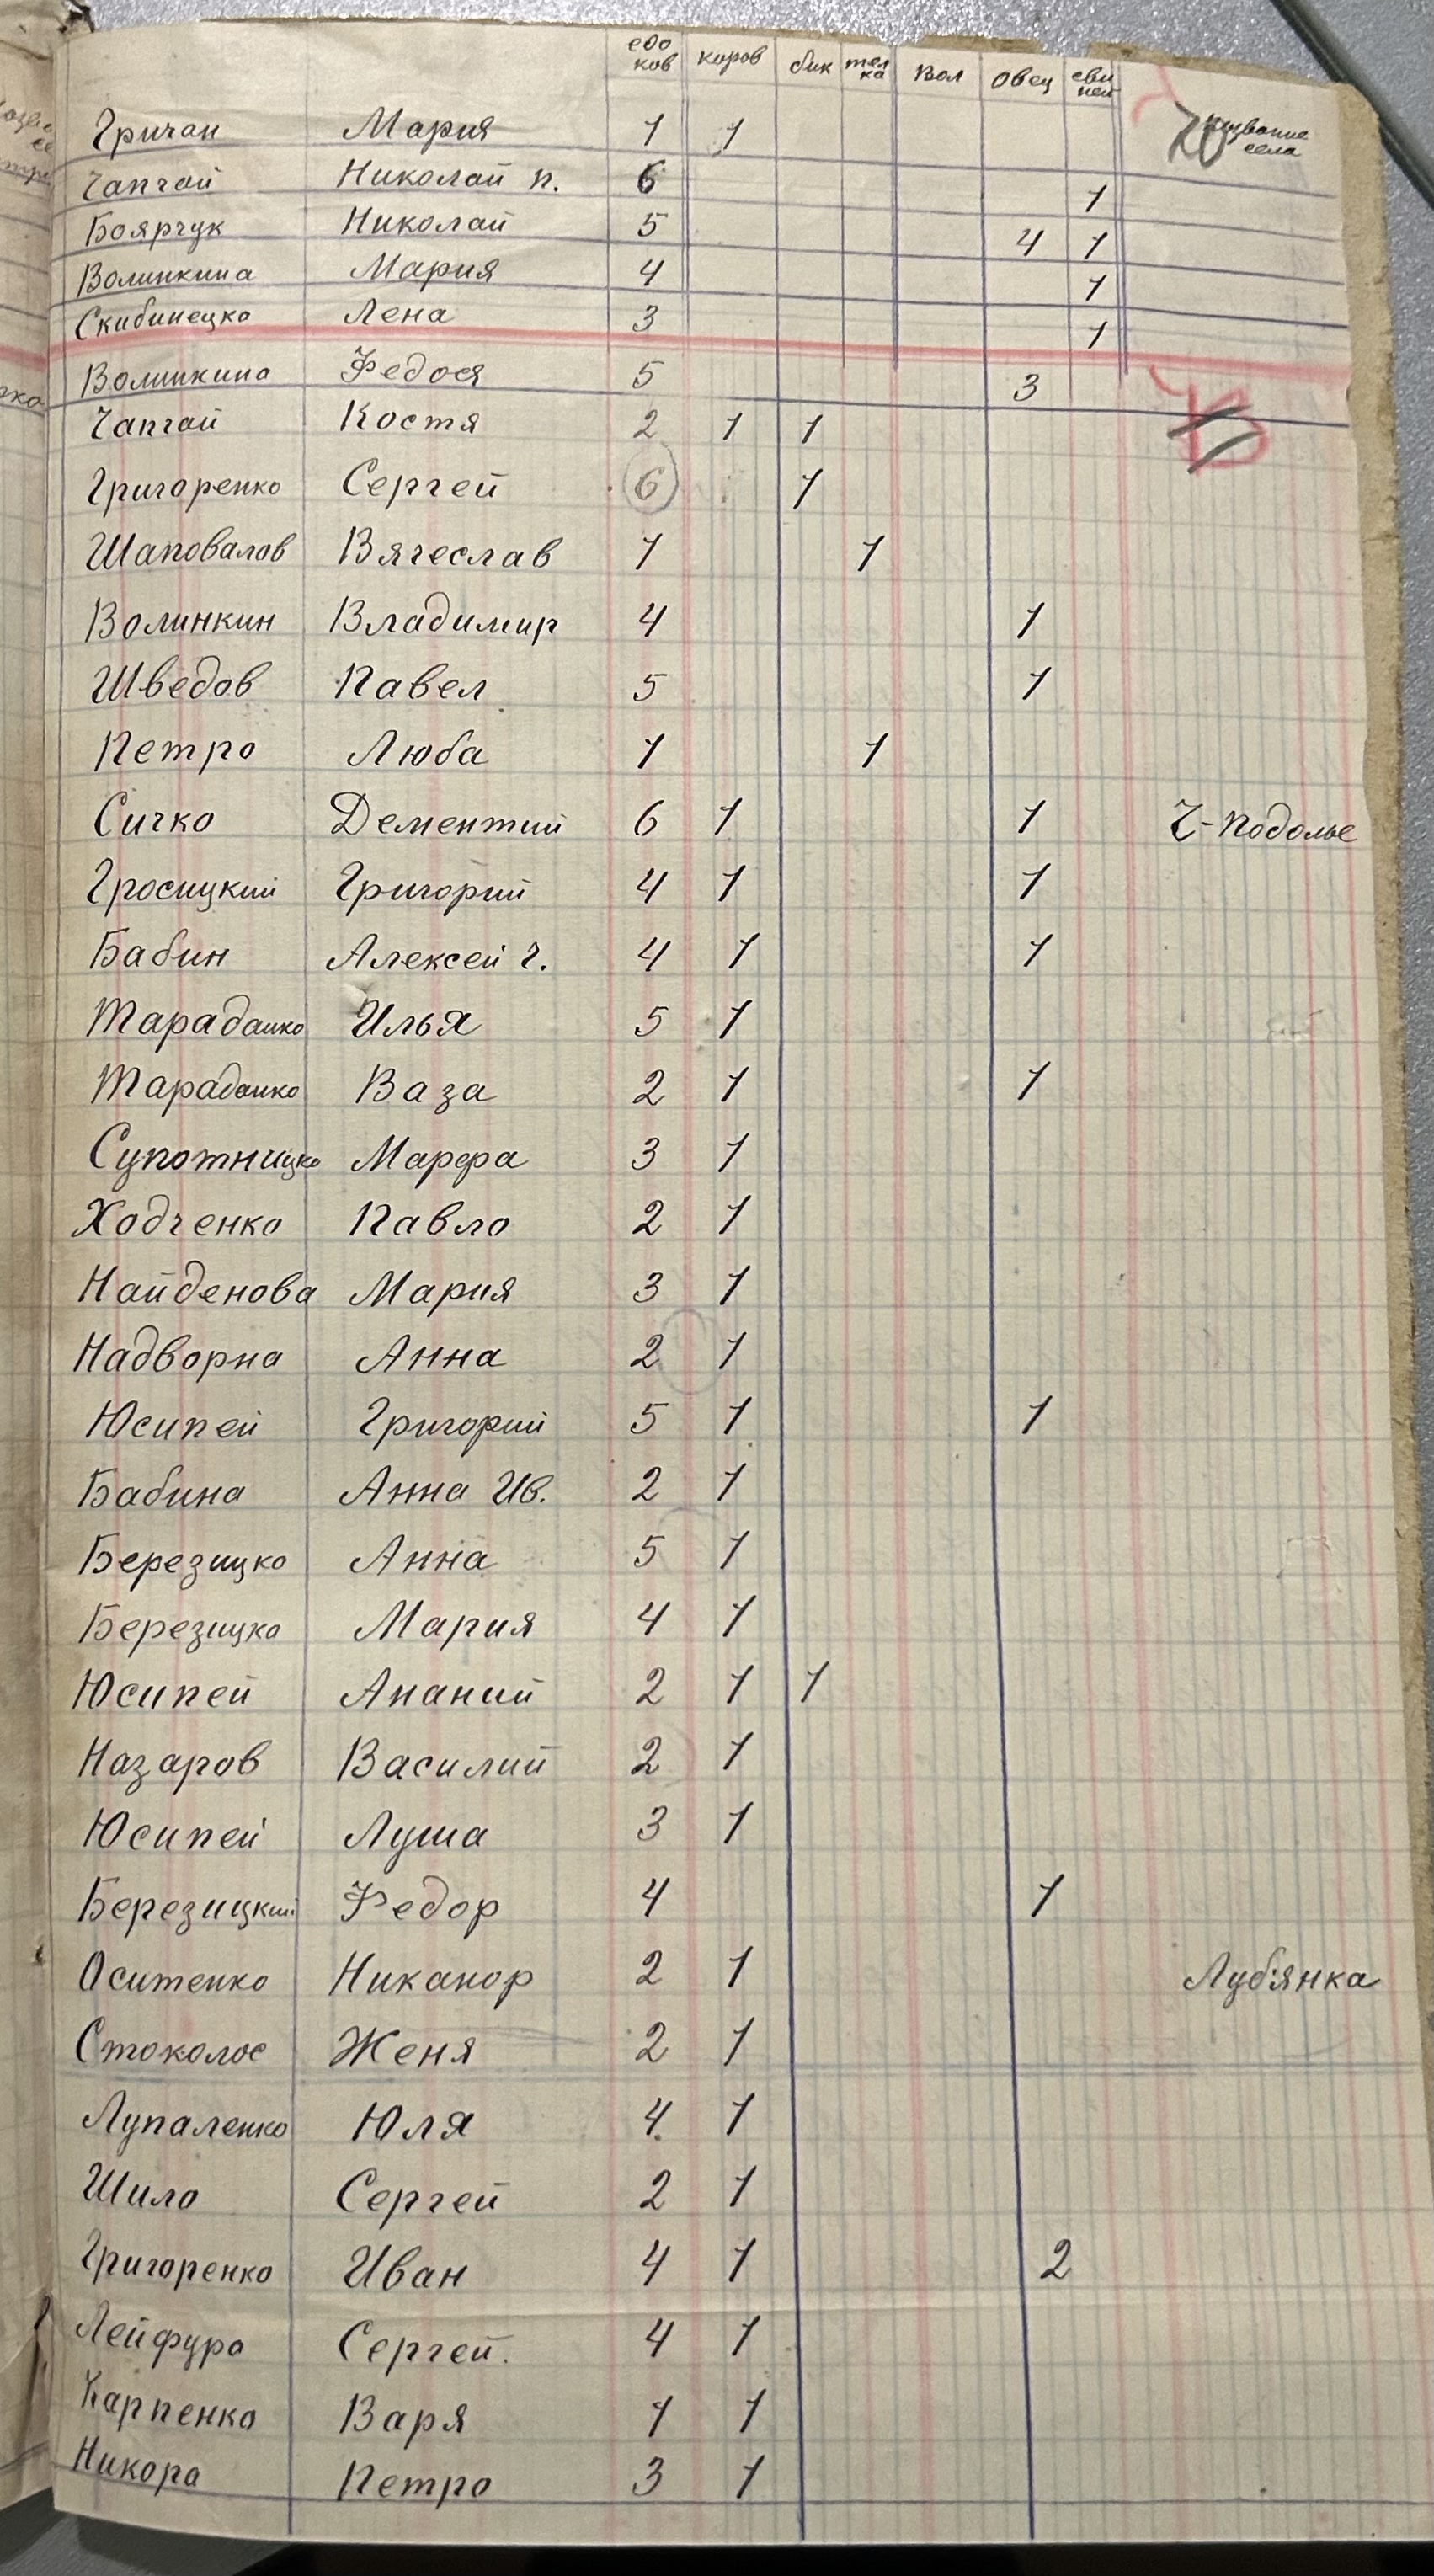 едоков коров бик телка вол овец свиней
Гричан Мария 1 1 название села
Чапчай Николай п. 6 1
Боярчук Николай 5 4 1
Волинкина Мария 4 1
Скибинецка Лена 3 1
Волинкина Федося 5 3
Чапчай Костя 2 1 1
Григоренко Сергей 6 1
Шаповалов Вячеслав 1 1
Волинкин Владимир 4 1
Шведов Павел 5 1
Петро Люба 1 1
Сичко Дементий 6 1 1 Ч-Подолье
Гросицкий Григорий 4 1 1
Бабин Алексей г. 4 1 1
Тарадайко Илья 5 1
Тарадайко Ваза 2 1 1
Супотницка Марфа 3 1
Ходченко Павло 2 1
Найденова Мария 3 1
Надворна Анна 2 1
Юсипей Григорий 5 1 1
Бабина Анна Ив. 2 1
Березицка Анна 5 1
Березицка Мария 4 1
Юсипей Ананий 2 1 1
Назаров Василий 2 1
Юсипей Луша 3 1
Березицкий Федор 4 1
Оситенко Никанор 2 1 Луб'янка
Стоколос Женя 2 1
Лупаленко Юля 4 1
Шило Сергей 2 1
Григоренко Иван 4 1 2
Лейфура Сергей. 4 1
Карпенко Варя 1 1
Никора Петро 3 1